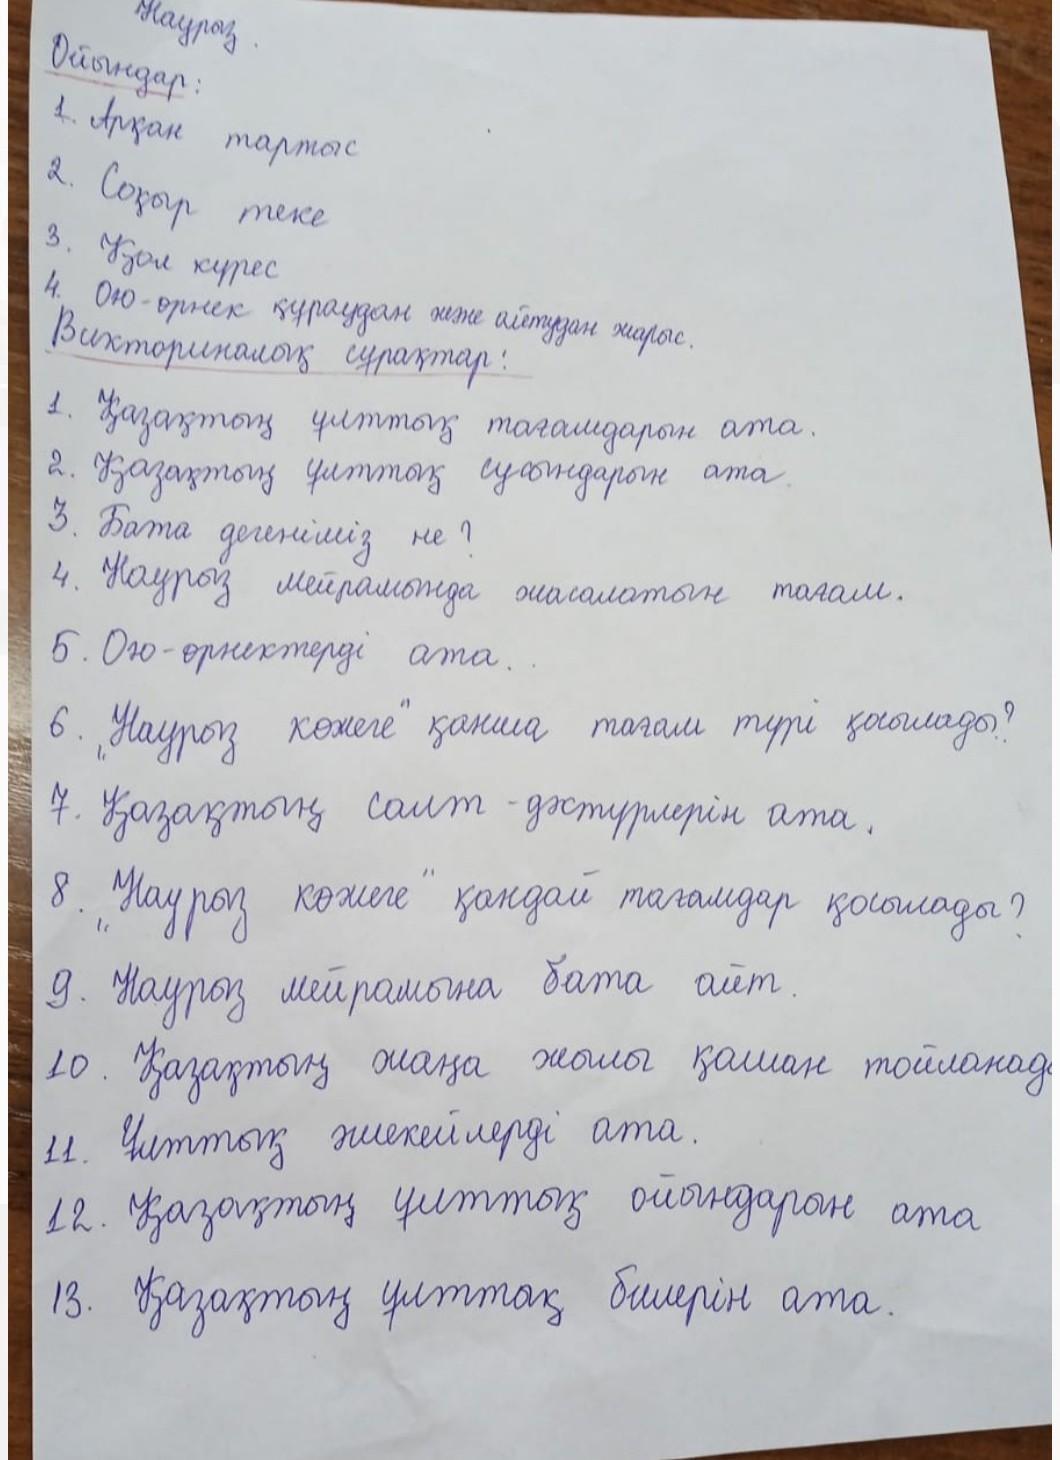 Наурыз.
Ойындар:
1. Арқан тартыс
2. Соқыр теке
3. Қол күрес
4. Ою-өрнек құраудан және айтудан жарыс.
Викториналық сұрақтар:
1. Қазақтың ұлттық тағамдарын ата.
2. Қазақтың ұлттық сусындарын ата.
3. Бата дегеніміз не?
4. Наурыз мейрамында жасалатын тағам.
5. Ою-өрнектерді ата.
6. „Наурыз көжеге" қанша тағам түрі қосылады?
7. Қазақтың салт-дәстүрлерін ата.
8. „Наурыз көжеге" қандай тағамдар қосылады?
9. Наурыз мейрамына бата айт.
10. Қазақтың жаңа жылы қашан тойланад
11. Ұлттық әшекейлерді ата.
12. Қазақтың ұлттық ойындарын ата
13. Қазақтың ұлттық билерін ата.